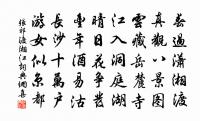 春過瀟湘渡
真觀八景圖
雲藏岳麓寺
江入洞庭湖
晴日花爭發
豐年酒易沽
長沙十萬戶
游女似京都
張祁渡湘江詞典網書